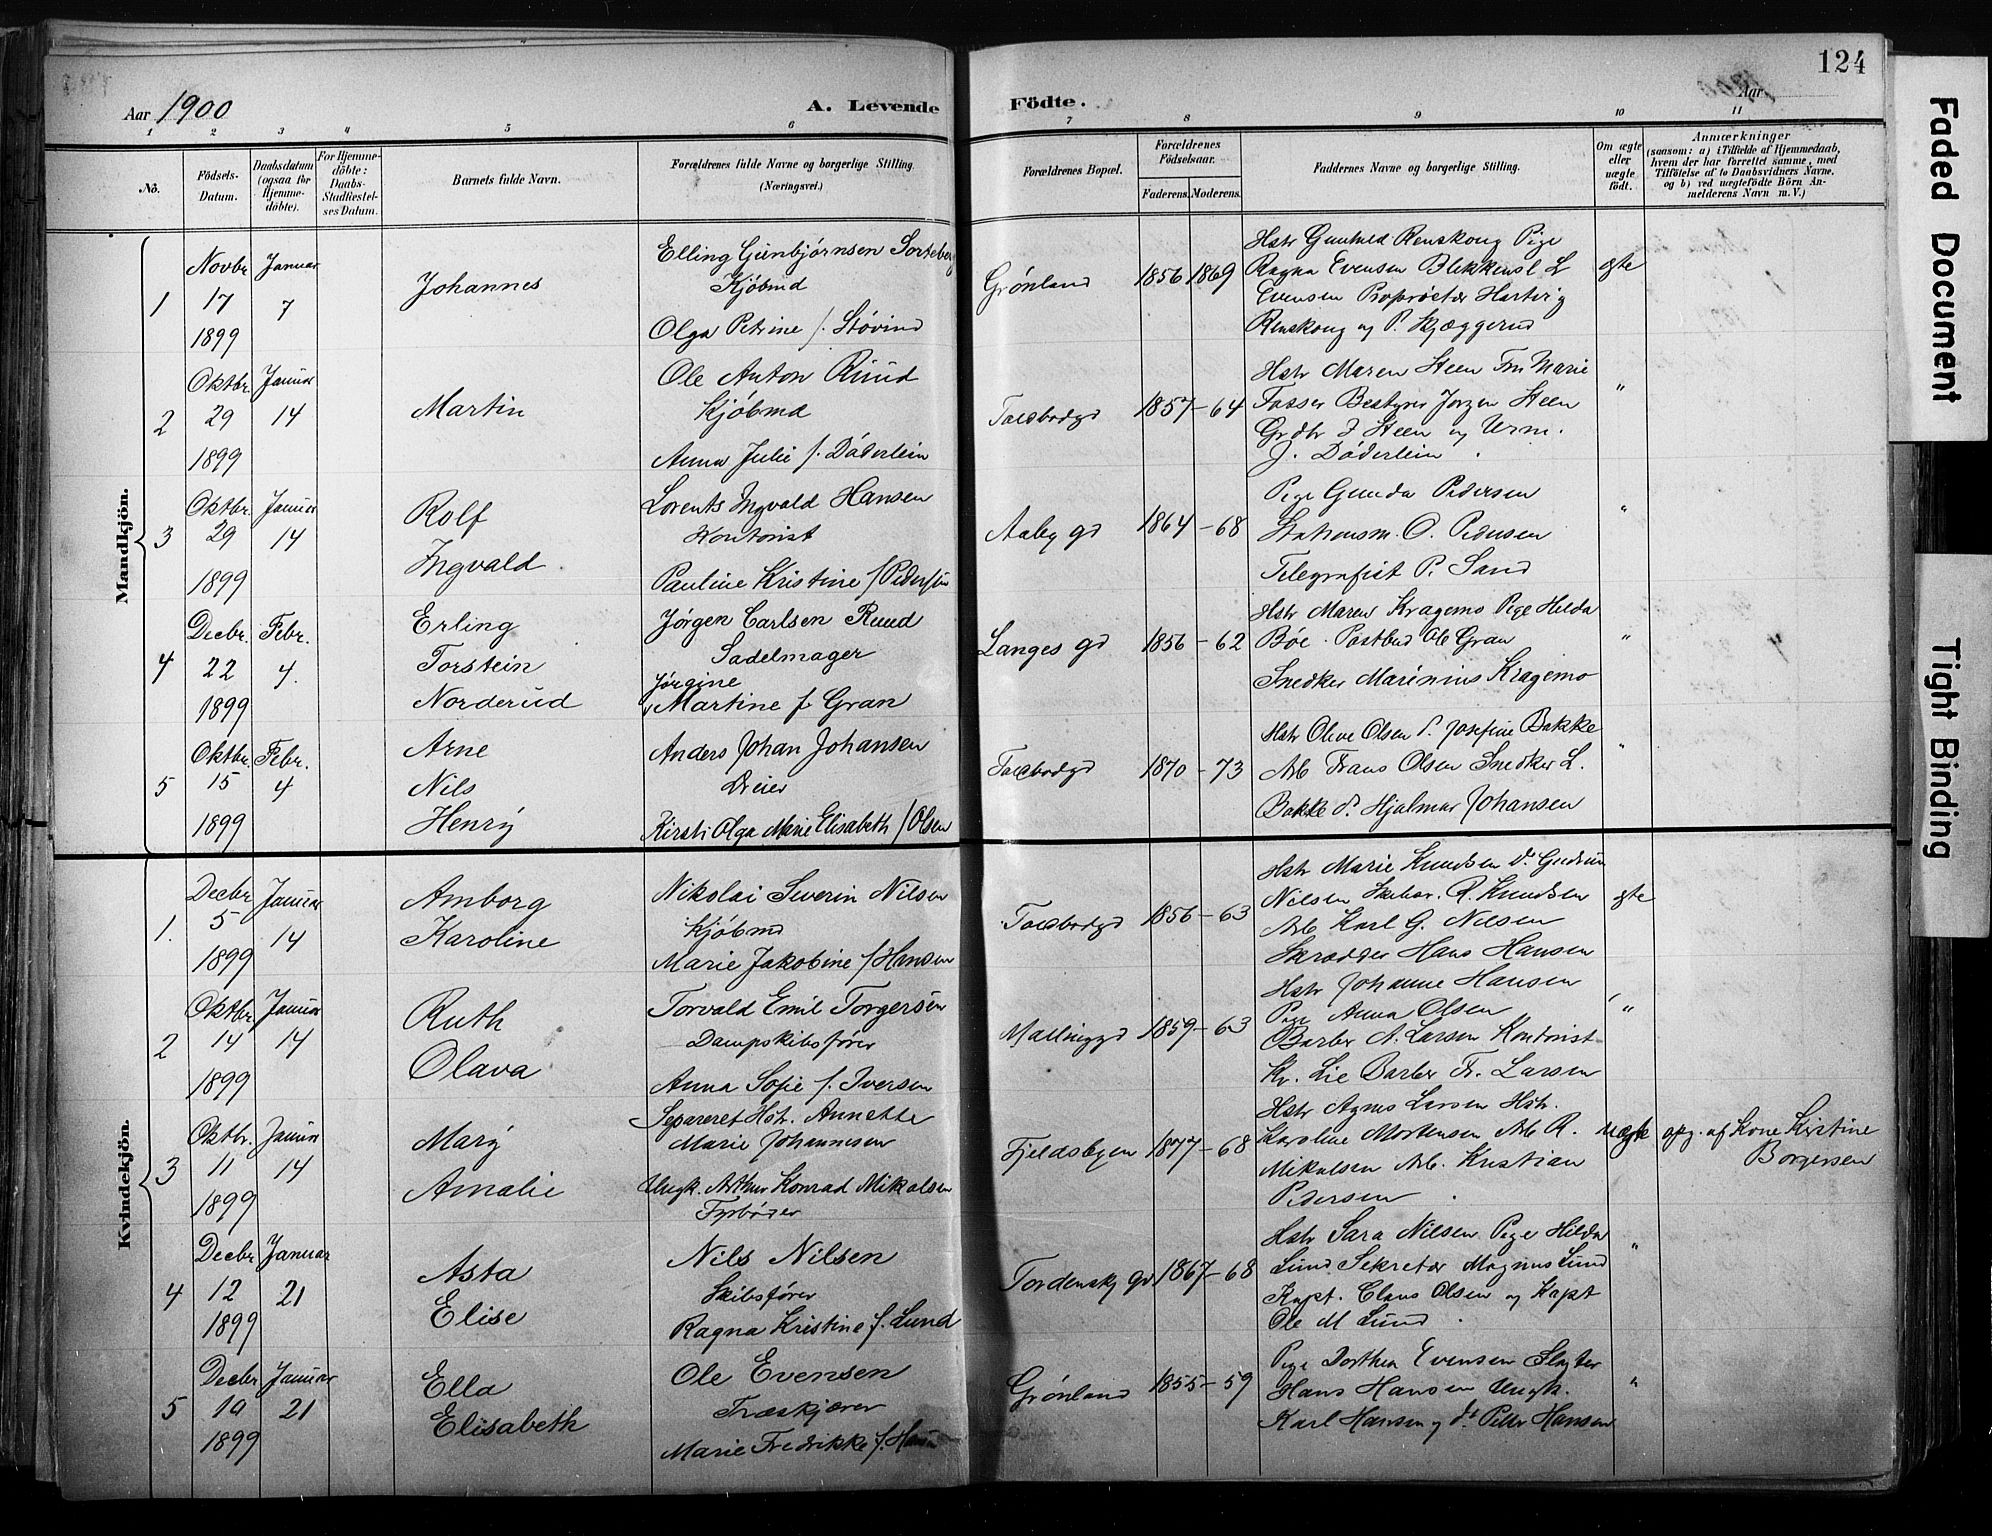 124
Aar 1900
A. Levende Födte.
Aar
1 2 3 4 5 6 7 8 9 10 11
No.
Födsels-Datum.
Daabsdatum (ogsaa for Hjemme-döbte).
For Hjemme-döbte: Daabs-Stadfæstel-ses Datum.
Barnets fulde Navn.
Forældrenes fulde Navne og borgerlige Stilling.
(Næringsvei.)
Forældrenes Bopæl.
Forældrenes Födselsaar.
Faderens. Moderens.
Faddernes Navne og borgerlige Stilling.
Om ægte eller uægte födt.
Anmærkninger
(saasom: a) i Tilfælde af Hjemmedaab, hvem der har forrettet samme, med Tilföielse af to Daabsvidners Navne, og b) ved uægtefödte Börn An-melderens Navn m. V.)
Mandkjön.
1
Novbr. 17 1899
Januar 7
Johannes
Elling Gunbjørnsen Sorteberg
Kjøbmd
Olga Petrine f. Støvind
Grønland
1856 1869
Hstr Gunhild Renskoug Pige
Ragna Evensen Blikkensl L
Evensen Proprietær Hartvig
Renskoug og P. Skjæggerud
ægte
2
Oktbr. 29 1899
Januar 14
Martin
Ole Anton Ruud
Kjøbmd
Anna Julie f. Døderlein
Toldbodgd
1857-64
Hstr Maren Steen Fru Marie
Fosser Bestyrer Jørgen Steen
Grdbr J Steen og Urm.
J. Døderlein.
"
3
Oktbr. 29 1899
Januar 14
Rolf
Ingvald
Lorents Ingvald Hansen
Kontorist
Pauline Kristine f Pedersen
Aaby gd
1864-68
Pige Gunda Pedersen
Stationsm. O. Pedersen
Telegrafist P. Sand
"
4
Decbr. 22 1899
Febr. 4.
Erling
Torstein
Norderud
Jørgen Carlsen Ruud
Sadelmager
Jørgine
Martine f Gran
Langes gd
1856-62
Hstr Maren Kragemo Pige Hilda
Bøe. Postbud Ole Gran
Snedker Marinius Kragemo
"
5
Oktbr. 15 1899
Febr. 4
Arne
Nils
Henry
Anders Johan Johansen
Dreier
Kirsti Olga Marie Elisabeth f Olsen
Toldbodgd
1870-73
Hstr Olive Olsen P. Josefine Bakke
Arb Frans Olsen Snedker L.
Bakke d. Hjalmar Johansen
"
Kvindekjön.
1.
Decbr 5 1899
Januar 14
Amborg
Karoline
Nikolai Severin Nilsen
Kjøbmd
Marie Jakobine f Hansen
Toldbodgd
1856-63
Hstr Marie Knudsen d. Gudrun
Nilsen R. Knudsen
Arb Karl G. Nilsen
Skrædder Hans Hansen
ægte
2
Oktbr. 14 1899
Januar 14
Ruth
Olava
Torvald Emil Torgersen
Dampskibsfører
Anna Sofie f. Iversen
Mallinggd
1859-63
Hstr Johanne Hansen
Pige Anna Olsen
Barber A. Larsen Kontorist
Kr. Lie Barber Fr. Larsen
"
3
Oktbr. 11 1899
Januar 14
Mary
Amalie
Separeret Hstr. Annette
Marie Johannesen
Ungk. Arthur Konrad Mikalsen
Fyrbøder
Fjeldsbyen
1877-68
Hstr Agnes Larsen Hstr.
Karoline Mortensen Arb R.
Mikalsen Arb. Kristian
Pedersen.
uægte
opg. af Kone Kristine
Borgersen
4
Decbr 12 1899
Januar 21
Asta
Elise
Nils Nilsen
Skibsfører
Ragna Kristine f. Lund
Tordensk gd
1867-68
Hstr Sara Nilsen Pige Hilda
Lund Sekretær Magnus Lund
Kapt. Claus Olsen og Kapt
Ole M Lund.
"
5
Decbr 19 1899
Januar 21
Ella
Elisabeth
Ole Evensen
Træskjærer
Marie Fredrikke f.
Grønland
1855-59
Pige Dorthea Evensen Slagter
Hans Hansen Ungk.
Karl Hansen og do Peter Hansen
"
Faded Document
Tight Binding